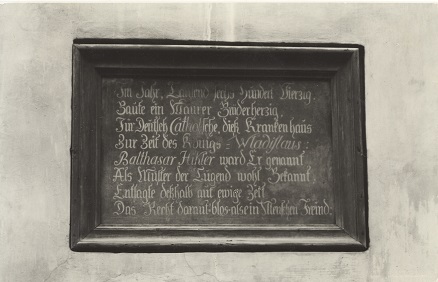 Im Jahr, Tausend sechs Hundert Vierzig,
Baute ein Maurer, Biederherzig,
Für Deutsch Catholische, dieß Krankenhaus
Zur Zeit des Königs = Wladislaus:
Balthasar ward Er genannt
Als Muster der Tugend wohl Bekannt
Entsagte deßhalb auf ewige Zeit
Das Recht daraut-blos-als ein Menschen Freind.